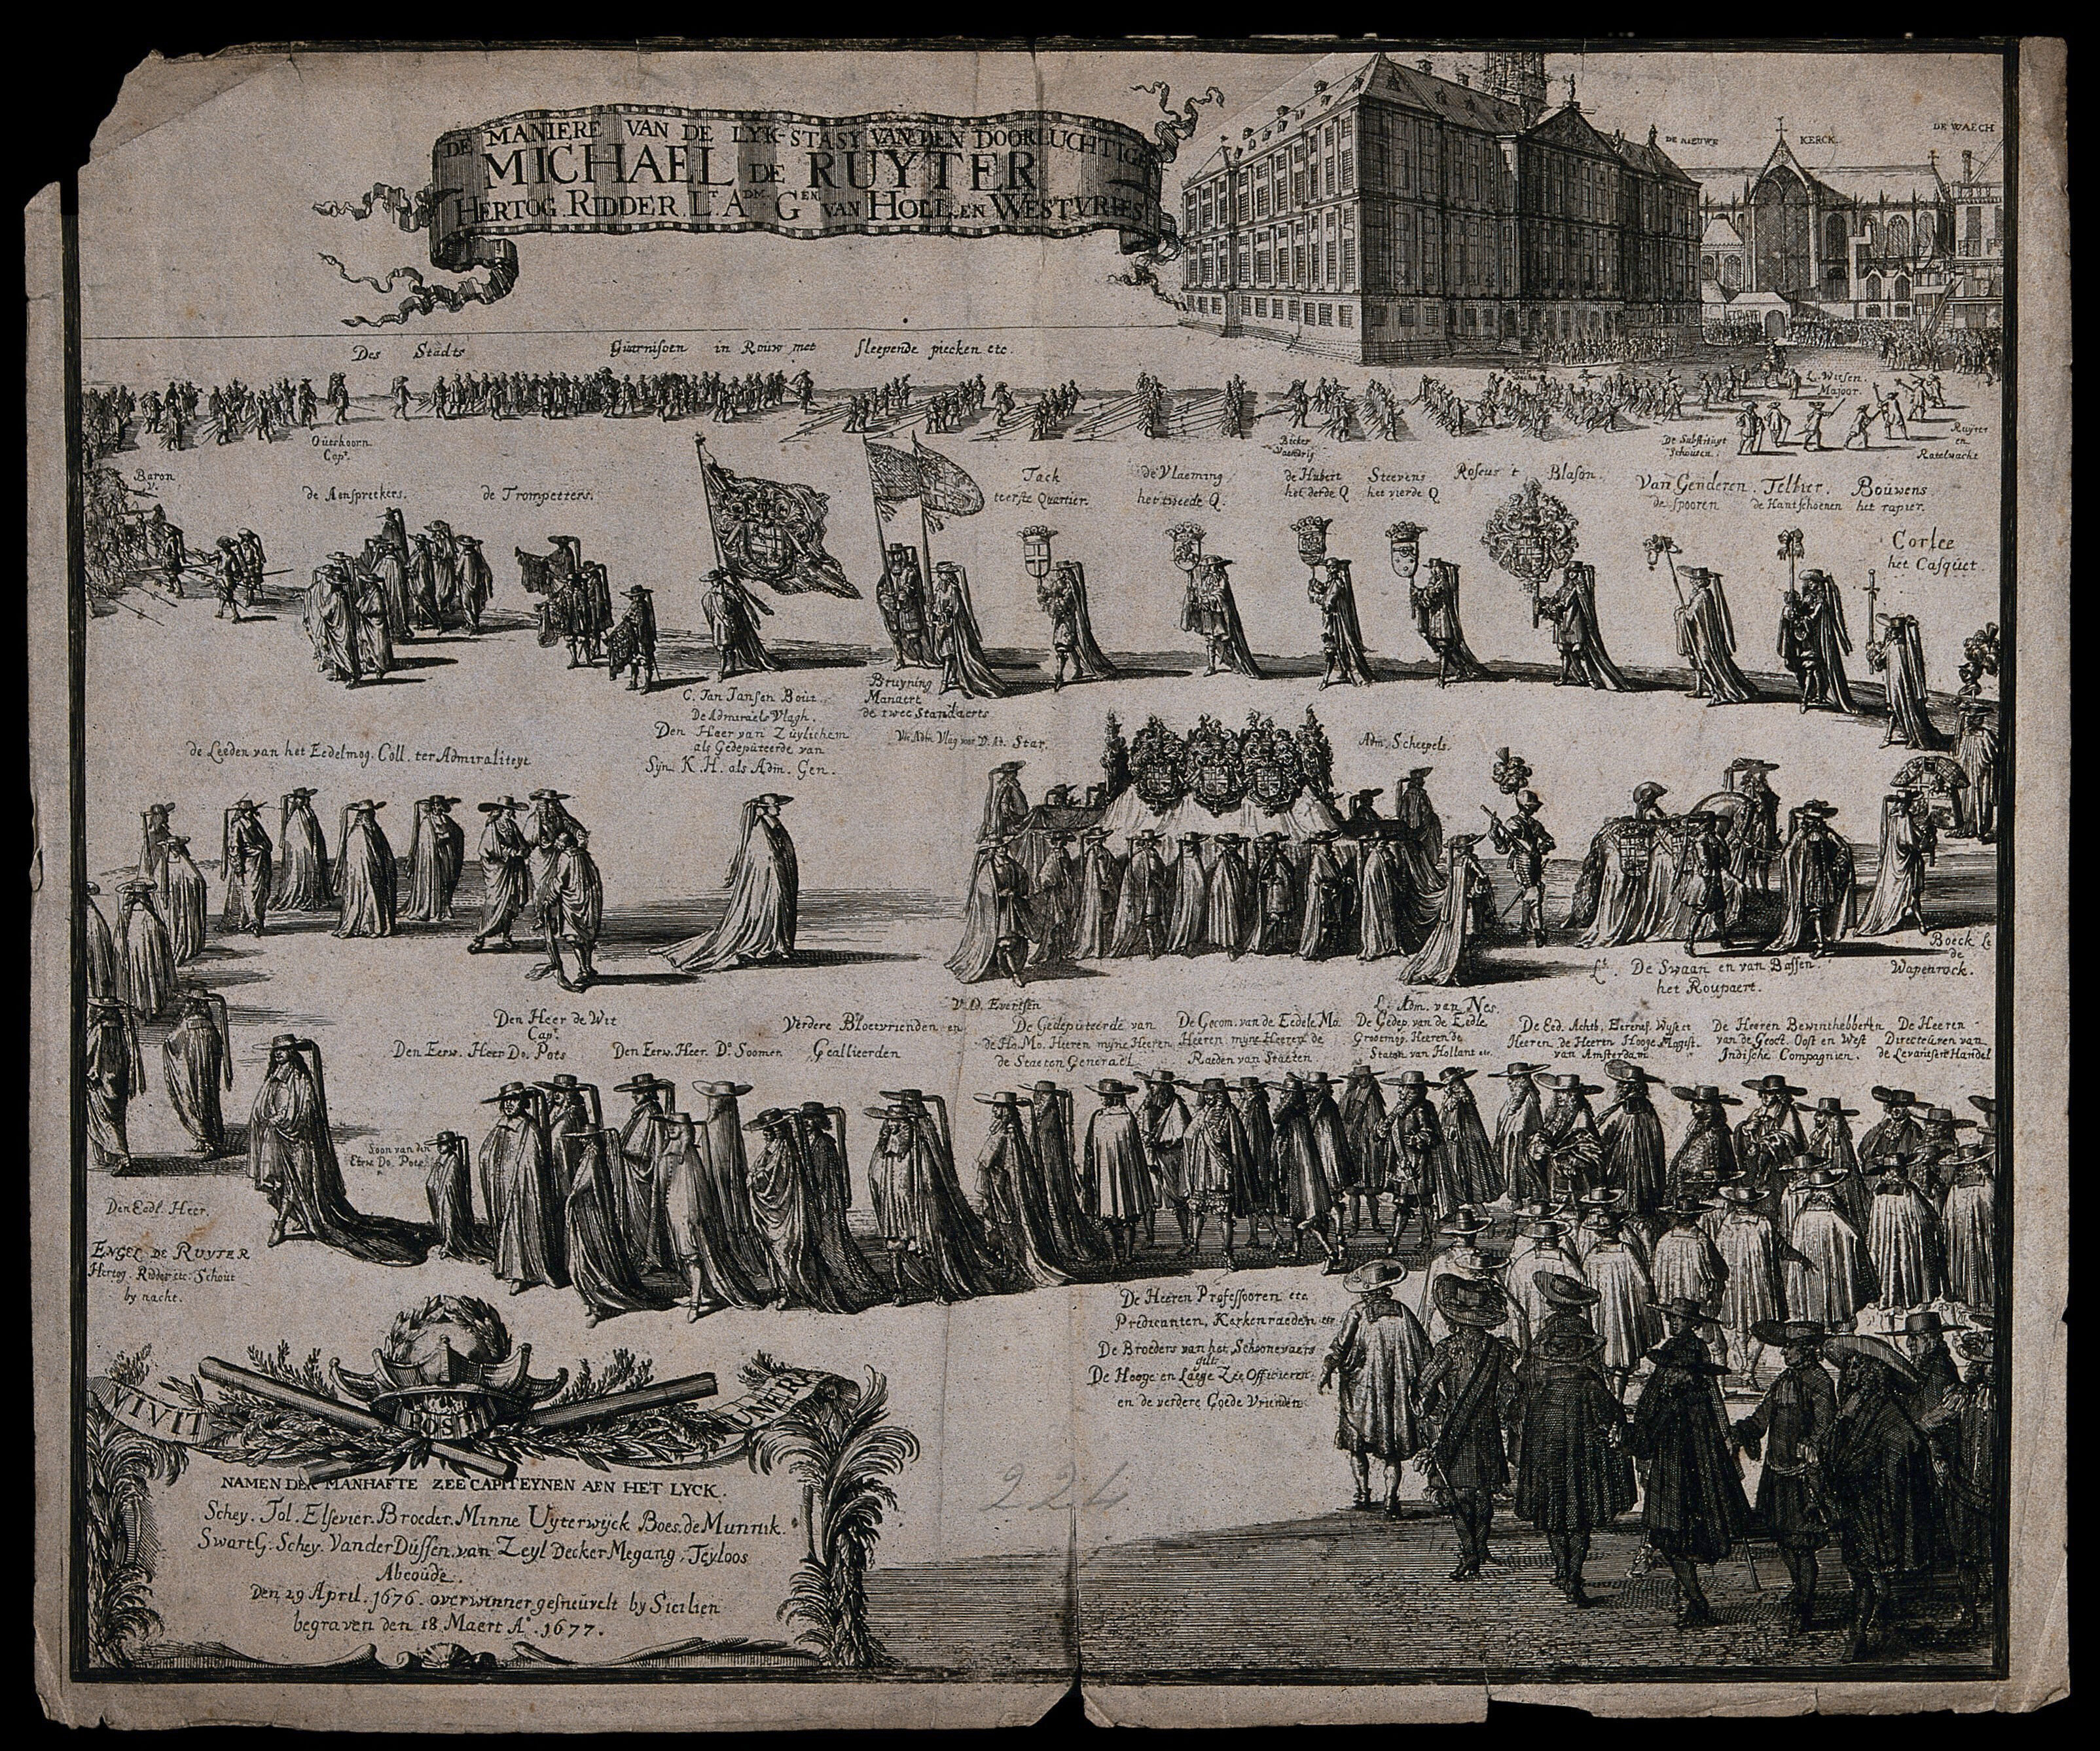 DE MANIERE VAN DE LYK-STASY VAN DEN DOORLUCHTIGE
MICHAEL DE RUYTER
HERTOG. RIDDER. LT. ADM. GEN. VAN HOLL. EN WESTVRIES.
DE NIEUWE KERCK.
DE WAECH
Des Stadts Guarnisoen in Rouw met sleepende piecken etc.
L. Witsen.
Majoor.
Outshoorn
Capt.
Bicker
Vaendrig
De Substituyt
Schouten.
Ruyter
en
Ratelwacht
Baron
V.
de Aenspreekers.
de Trompetters.
Tack
teerste Quartier.
de Vlaeming
het tweede Q.
de Hubert
het derde Q
Steevens
het vierde Q
Roseus 't Blason.
Van Genderen.
de Spooren
Teltier.
de Hantschoenen
Bouwens
het rapier.
Corlee
het Casquet.
C. Jan Jansen Bout.
De Admiraels Vlagh.
Bruyning
Manaert
de twee Standaerts
Den Heer van Zuylichem
als Gedeputeerde van
Syn K. H. als Adm. Gen.
Star.
Adm. Scheepels.
de Leeden van het Eedelmog. Coll. ter Admiraliteyt
Lt. De Swaan en van Bassen.
het Roupaert.
Boeck Lt
de
Wapenrock.
V. D. Evertsen
L. Adm. van Nes.
Den Heer de Wit
Capt.
Den Eerw. Heer Do. Pots
Den Eerw. Heer. Do. Soomen
Verdere Bloetvrienden en
Geallieerden
De Gedeputeerde van
de Ho. Mo. Heeren myne Heeren
de Staeten Generael.
De Gecom. van de Eedele Mo.
Heeren myne Heeren de
Raeden van Staeten.
De Gedep. van de Eedle
Grootmog. Heeren de
Staten van Hollant etc.
De Eed. Achtb. Eerenf. Wyse
Heeren de Heeren Hooge Magist.
van Amsterdam.
De Heeren Bewinthebberen
van de Geoct. Oost en West
Indische Compagnien.
De Heeren
Directeuren van
de Levantsen Handel
Soon van den
Eerw Do. Pots.
Den Eedl. Heer.
ENGEL DE RUYTER
Hertog. Ridder etc. Schout
by nacht.
De Heeren Professooren etc
Predicanten, Kerkenraeden etc
De Broeders van het Schoonevaers
gilt
De Hooge en Laege Zee Officieren.
en de verdere Goede Vrienden.
VIVIT POST FUNERA
NAMEN DER MANHAFTE ZEE CAPITEYNEN AEN HET LYCK.
Schey. Tol. Elsevier. Broeder. Minne Uyterwijck Boes. de Munnik.
Swart G. Schey. Van der Dussen. van Zeyl Decker Megang. Teyloos
Abcoude.
Den 29 April. 1676. overwinner gesneuvelt by Sicilien
begraven den 18 Maert Ao. 1677.
224